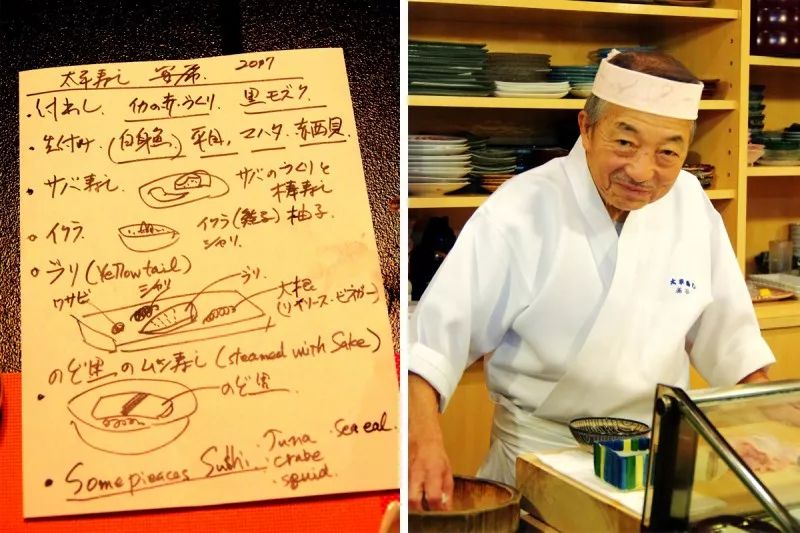 太平寿し 2017
・付出し. イカの赤づくり 黒モズク
・先付み. (白身魚) 平目. マハタ.
・サバ寿し. サバのづくりと
棒寿し
・イクラ イクラ(鮭子) 柚子
シャリ.
・ブリ(Yellow tail) ブリ.
ワサビ シャリ 大根
のど黒のムシ寿し (steamed with Sake)
のど黒
・Some pieaces Sushi. .Tuna .sea eal.
.crabe
.squid.
太平寿し